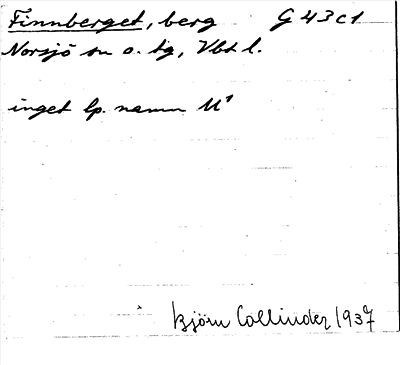 Finnberget, berg G 43 c1
Norsjö sn o. tg, Vbt l.
inget lp. namn M¹
Björn Collinder 1937